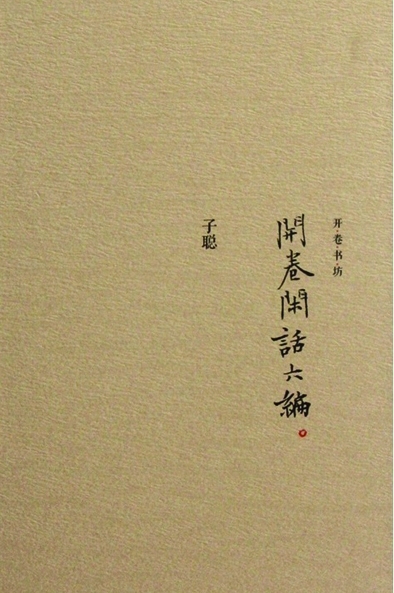 开·卷·书·坊
開卷閑話六編
子聪